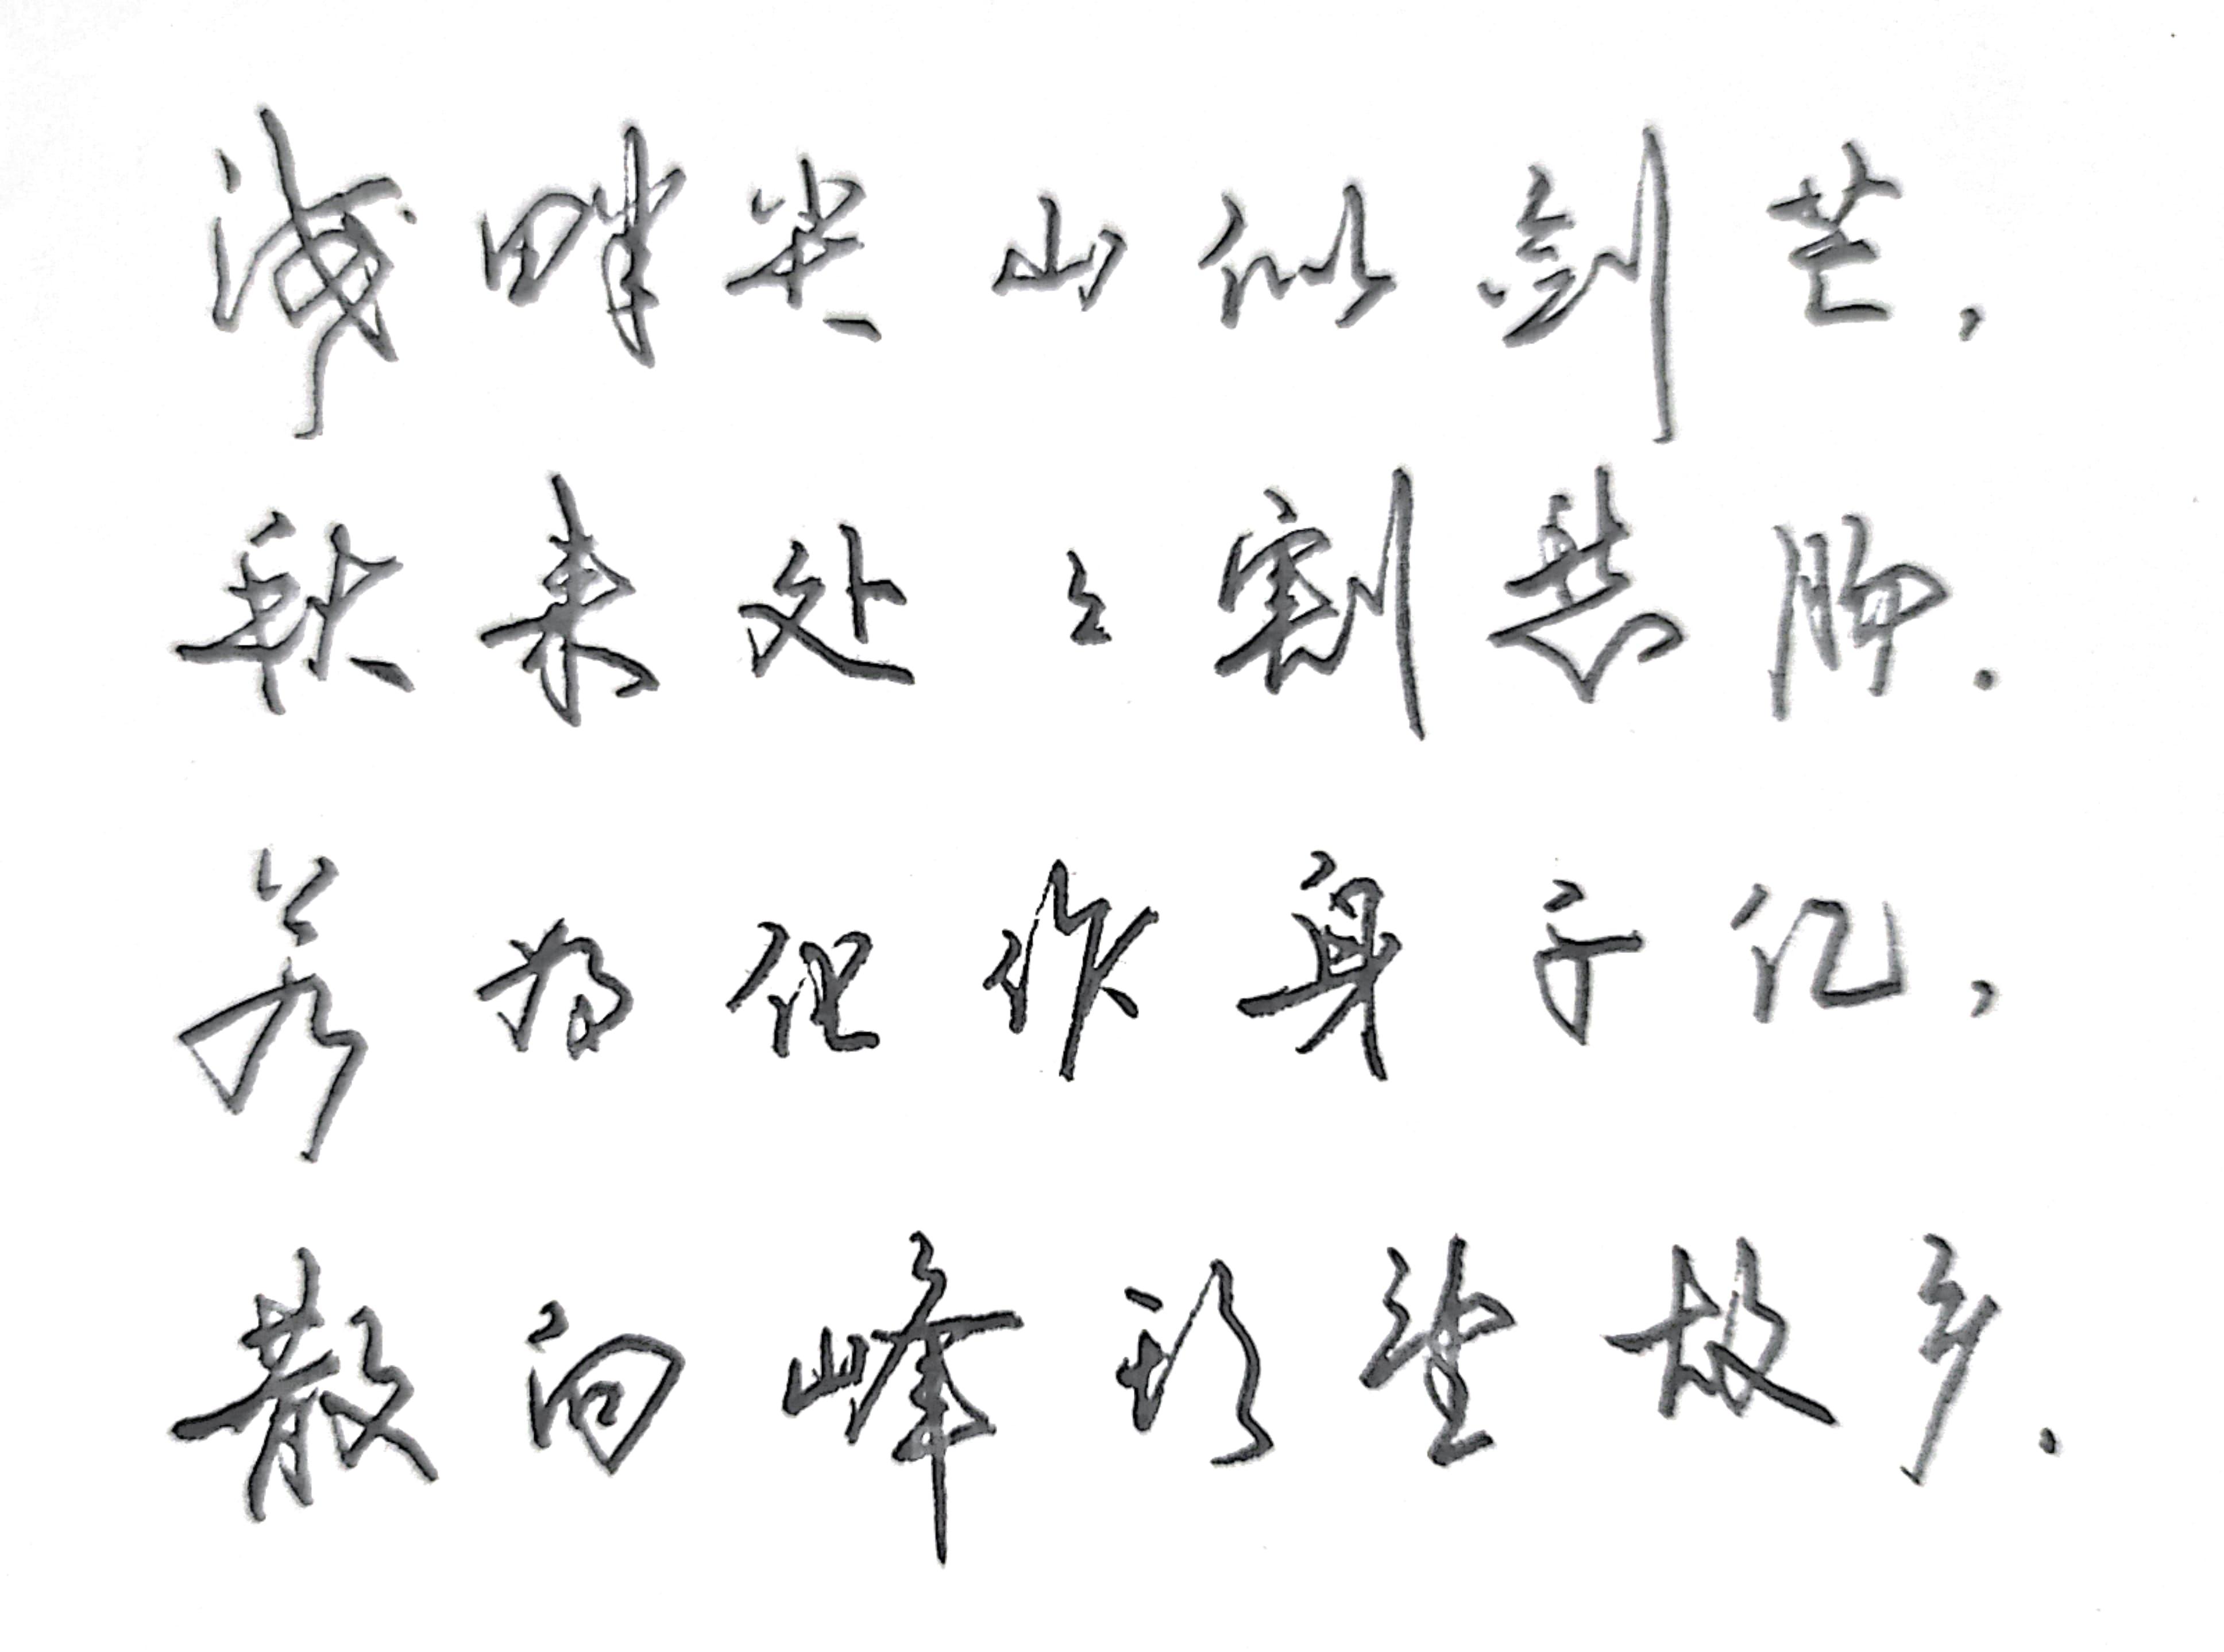 海畔尖山似剑芒,
秋来处々割愁肠.
若为化作身千亿,
散向峰头望故乡.